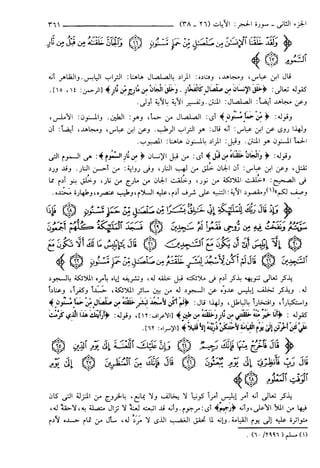 الجزء الثاني - سورة الحجر: الآيات (٢٦ - ٣٨) ٣٦١
﴿وَلَقَدْ خَلَقْنَا الْإِنسَانَ مِن صَلْصَالٍ مِّنْ حَمَإٍ مَّسْنُونٍ ۝ وَالْجَانَّ خَلَقْنَاهُ مِن قَبْلُ مِن نَّارِ
السَّمُومِ ۝﴾
قال ابن عباس، ومجاهد، وقتادة: المراد بالصلصال هاهنا: التراب اليابس. والظاهر أنه
كقوله تعالى: ﴿خَلَقَ الْإِنسَانَ مِن صَلْصَالٍ كَالْفَخَّارِ . وَخَلَقَ الْجَانَّ مِن مَّارِجٍ مِّن نَّارٍ﴾ [الرحمن: ١٤، ١٥].
وعن مجاهد أيضاً: الصلصال: المنتن. وتفسير الآية بالآية أولى.
وقوله: ﴿مِّنْ حَمَإٍ مَّسْنُونٍ﴾ أي: الصلصال من حمأ، وهو: الطين. والمسنون: الأملس،
ولهذا روي عن ابن عباس: أنه قال: هو التراب الرطب. وعن ابن عباس، ومجاهد، أيضاً: أن
الحمأ المسنون هو المنتن. وقيل: المراد بالمسنون هاهنا: المصبوب.
وقوله: ﴿وَالْجَانَّ خَلَقْنَاهُ مِن قَبْلُ﴾ أي: من قبل الإنسان ﴿مِن نَّارِ السَّمُومِ﴾: هى السموم التى
تقتل، وعن ابن عباس: أن الجان خلق من لهب النار، وفى رواية: من أحسن النار. وقد ورد
فى الصحيح: «خُلقت الملائكة من نور، وخُلقت الجان من مارج من نار، وخُلق بنو آدم مما
وصف لكم»(١) ومقصود الآية: التنبيه على شرف آدم، عليه السلام، وطيب عنصره، وطهارة محتده.
﴿وَإِذْ قَالَ رَبُّكَ لِلْمَلَائِكَةِ إِنِّي خَالِقٌ بَشَرًا مِّن صَلْصَالٍ مِّنْ حَمَإٍ مَّسْنُونٍ ۝ فَإِذَا سَوَّيْتُهُ
وَنَفَخْتُ فِيهِ مِن رُّوحِي فَقَعُوا لَهُ سَاجِدِينَ ۝ فَسَجَدَ الْمَلَائِكَةُ كُلُّهُمْ أَجْمَعُونَ
۝ إِلَّا إِبْلِيسَ أَبَىٰ أَن يَكُونَ مَعَ السَّاجِدِينَ ۝ قَالَ يَا إِبْلِيسُ مَا لَكَ أَلَّا تَكُونَ مَعَ
السَّاجِدِينَ ۝ قَالَ لَمْ أَكُن لِّأَسْجُدَ لِبَشَرٍ خَلَقْتَهُ مِن صَلْصَالٍ مِّنْ حَمَإٍ مَّسْنُونٍ ۝﴾
يذكر تعالى تنويهه بذكر آدم فى ملائكته قبل خلقه له، وتشريفه إياه بأمره الملائكة بالسجود
له. ويذكر تخلف إبليس عدوّه عن السجود له من بين سائر الملائكة، حَسَداً وكفراً، وعناداً
واستكباراً، وافتخاراً بالباطل، ولهذا قال: ﴿لَمْ أَكُن لِّأَسْجُدَ لِبَشَرٍ خَلَقْتَهُ مِن صَلْصَالٍ مِّنْ حَمَإٍ مَّسْنُونٍ﴾
كقوله : ﴿أَنَا خَيْرٌ مِّنْهُ خَلَقْتَنِي مِن نَّارٍ وَخَلَقْتَهُ مِن طِينٍ﴾ [الأعراف: ١٢]، وقوله: ﴿أَرَأَيْتَكَ هَٰذَا الَّذِي كَرَّمْتَ
عَلَيَّ لَئِنْ أَخَّرْتَنِ إِلَىٰ يَوْمِ الْقِيَامَةِ لَأَحْتَنِكَنَّ ذُرِّيَّتَهُ إِلَّا قَلِيلًا﴾ [الإسراء: ٦٢].
﴿قَالَ فَاخْرُجْ مِنْهَا فَإِنَّكَ رَجِيمٌ ۝ وَإِنَّ عَلَيْكَ اللَّعْنَةَ إِلَىٰ يَوْمِ الدِّينِ
۝ قَالَ رَبِّ فَأَنظِرْنِي إِلَىٰ يَوْمِ يُبْعَثُونَ ۝ قَالَ فَإِنَّكَ مِنَ الْمُنظَرِينَ ۝ إِلَىٰ يَوْمِ
الْوَقْتِ الْمَعْلُومِ ۝﴾
يذكر تعالى أنه أمر إبليس أمراً كونياً لا يخالف ولا يمانع، بالخروج من المنزلة التى كان
فيها من الملأ الأعلى، وأنه ﴿رَجِيمٌ﴾ أى: مرجوم. وأنه قد أتبعته لعنةٌ لا تزال متصلة به، لاحقة له،
متواترة عليه إلى يوم القيامة. وإنه لما تحقق الغضب الذى لا مَرَدَّ له، سأل من تمام حسده لآدم
(١) مسلم (٢٩٩٦ / ٦٠) .